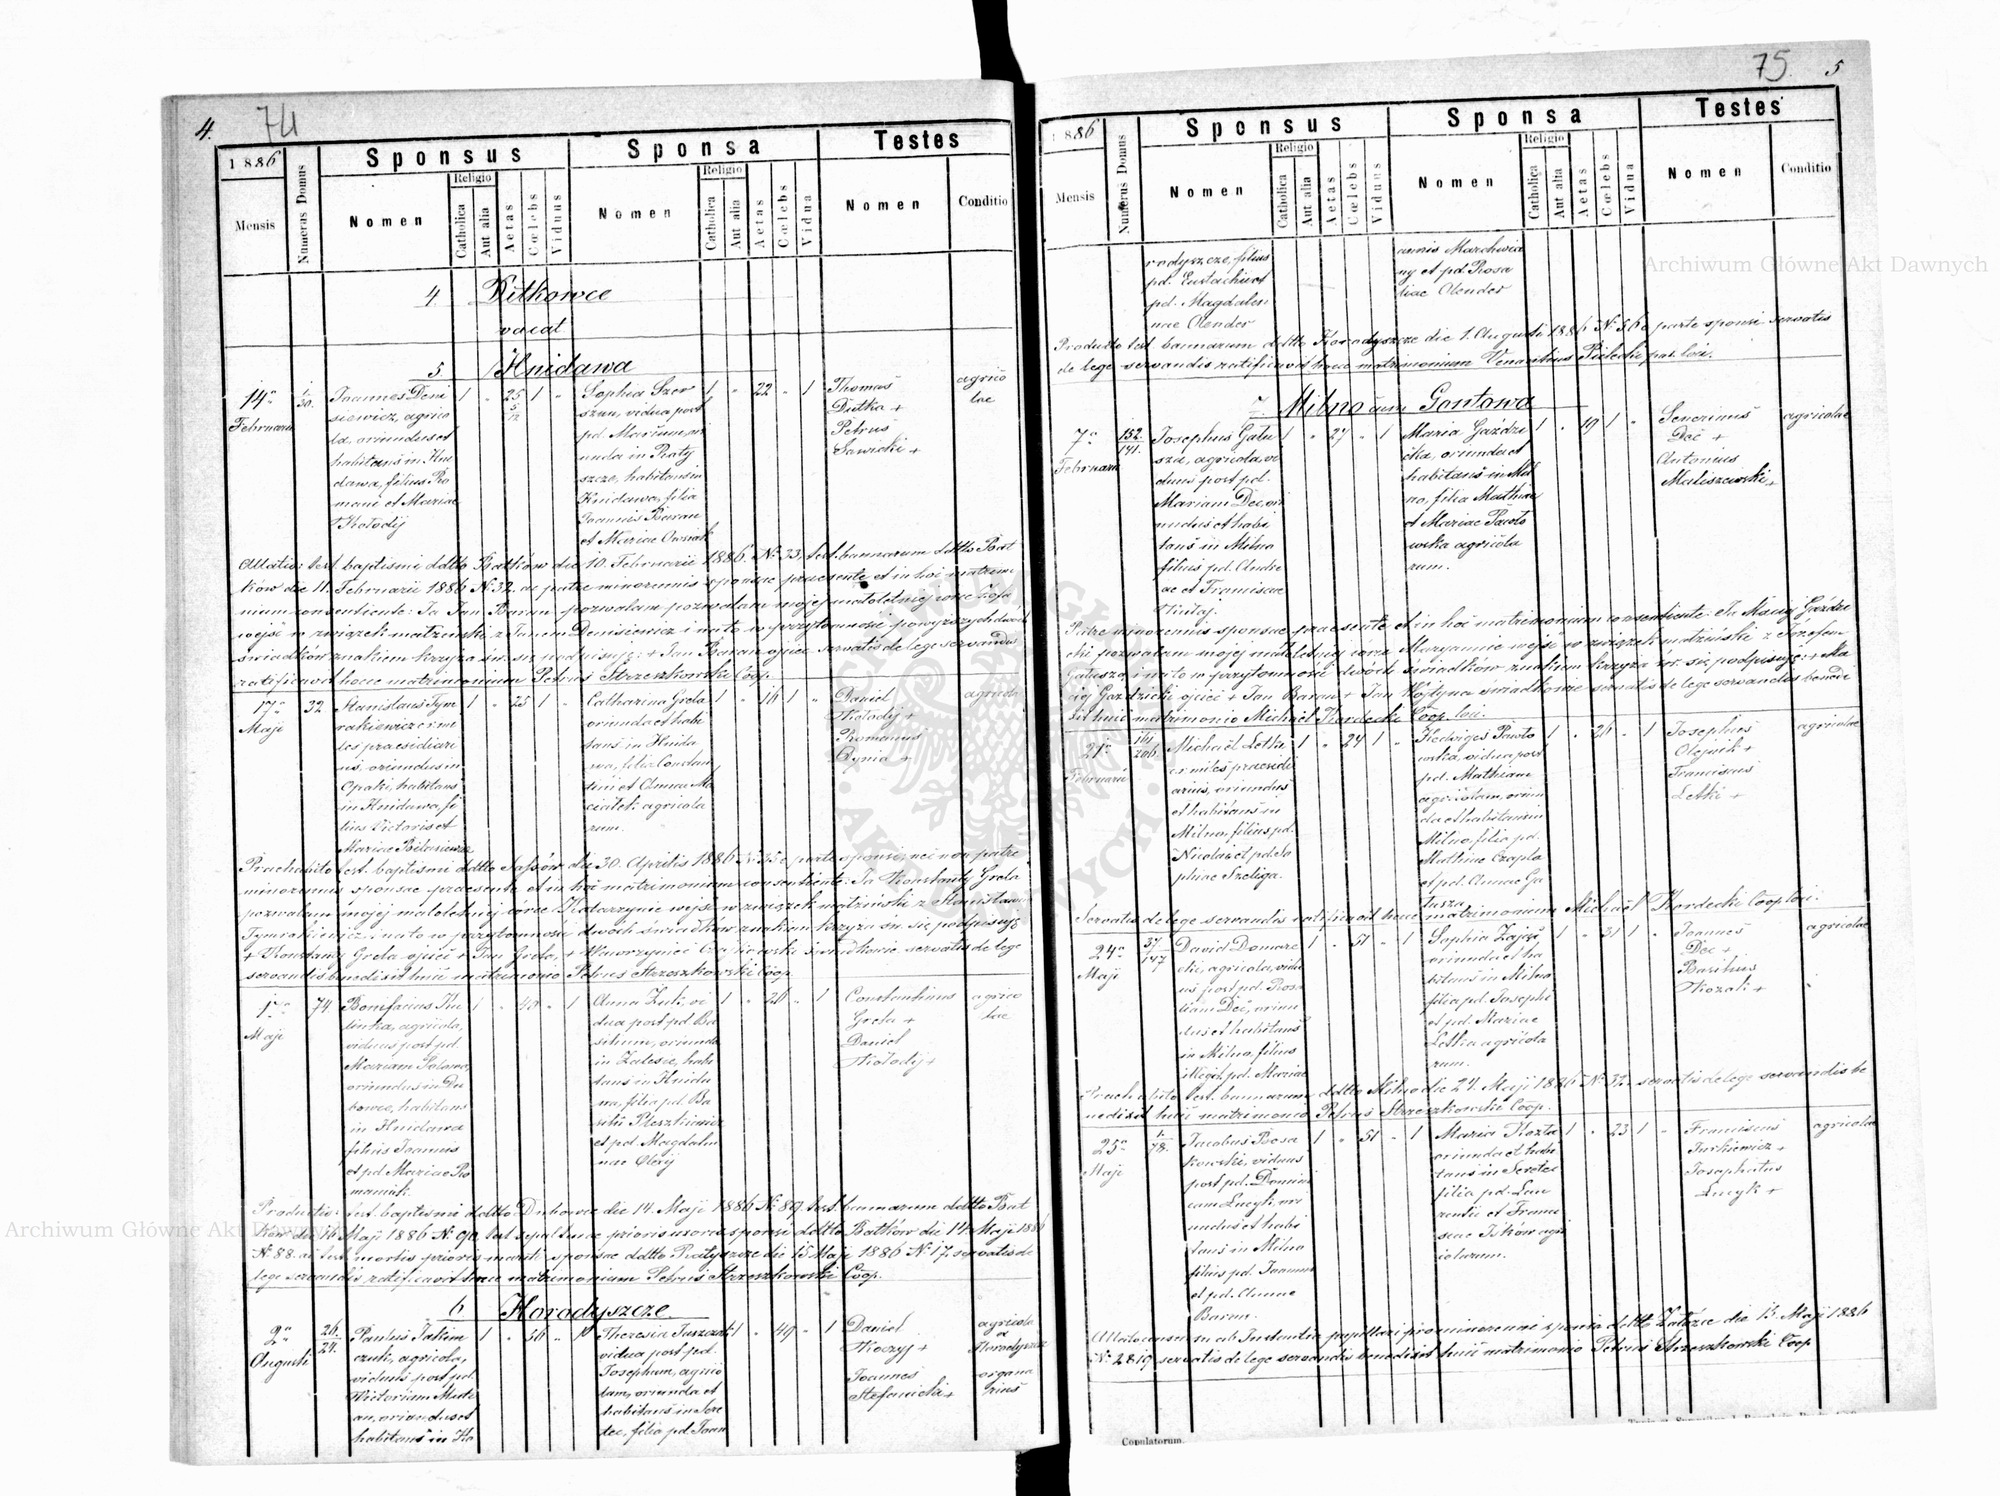 4.
74
1886
Mensis
Numerus Domus
Sponsus
Nomen
Religio
Catholica
Aut alia
Aetas
Cœlebs
Viduus
Sponsa
Nomen
Religio
Catholica
Aut alia
Aetas
Cœlebs
Vidua
Testes
Nomen
Conditio
4. Bitkowce
vacat
5 Hnidawa
14a
Februarii
30.
Joannes Deni
siewicz, agrico
la, oriundus et
habitans in Hni
dawa, filius Ro
mani et Mariae
Kołodij
1 " 25 1 "
Sophia Szer
szun, vidua post
pd. Marcum, ori
unda in Raty
szcze, habitans in
Hnidawa, filia
Joannis Baran
et Mariae Owsiak
1 " 22 " 1
Thomas
Dutka +
Petrus
Sawicki +
agrico
lae
Allatis: test. baptismi ddtto Batków die 10. Februarii 1886. N. 33, test. bannorum ddtto Bat
ków die 11. Februarii 1886 N. 32. ac patre minorennis sponsae praesente et in hoc matrimo
nium consentiente: Ja Jan Baran pozwalam pozwalam mojej małoletniej córce Zofii
wejść w związek małżeński z Janem Denisiewicz i na to w przytomności powyższych dwóch
świadków znakiem krzyża św. się podpisuję: + Jan Baran ojciec servatis de lege servandis
ratificavit hocce matrimonium Petrus Strzeszkowski Coop.
17a
Maji
32
Stanislaus Tym
rakiewicz: mi
les praesidiari
us, oriundus in
Opaki, habitans
in Hnidawa, fi
lius Victoris et
Mariae
1 " 25 1 "
Catharina Greła
oriunda et habi
tans in Hnida
wa, filia Constan
tini et Annae Ma
ciałek agricola
rum.
1 " 16 1 "
Daniel
Kołodij +
Romanus
Cynia +
agricolae
Praehabito test. baptismi ddtto Sassów die 30. Aprilis 1886 N. 35 e parte sponsi, nec non patre
minorennis sponsae praesente et in hoc matrimonium consentiente: Ja Konstanty Greła
pozwalam mojej małoletniej córce Katarzynie wejść w związek małżeński z Stanisławem
Tymrakiewicz i na to w przytomności dwóch świadków znakiem krzyża św. się podpisuję
+ Konstanty Greła ojciec + Jan Greła, + Wawrzyniec Czajkowski świadkowie servatis de lege
servandis benedixit huic matrimonio Petrus Strzeszkowski Coop.
17a
Maji
74.
Bonifacius Ku
linka, agricola,
viduus post pd.
Mariam
oriundus in Du
bowce, habitans
in Hnidawa
filius Joannis
et pd. Mariae Ro
maniak.
1 " 40 " 1
Anna Zuk, vi
dua post pd. Ba
silium, oriunda
in Zalesce, habi
tans in Hnida
wa, filia pd. Ba
silii
et pd. Magdale
nae Olexij
1 " 26 " 1
Constantinus
Greła +
Daniel
Kołodij +
agrico
lae
Productis: test. baptismi ddtto Dubowce die 14. Maji 1886 N. 89 test. bannorum ddtto Bat
ków die 16. Maji 1886 N. 90, test. sepulturae prioris uxoris sponsi ddtto Batków die 14. Maji 1886
N. 88. ac test. mortis prioris mariti sponsae ddtto Ratyszcze die 15. Maji 1886 N. 17. servatis de
lege servandis ratificavit hocce matrimonium Petrus Strzeszkowski Coop.
6 Horodyszcze
2a
Augusti
26.
24.
Paulus Jakim
czuk, agricola,
viduus post pd.
Victoriam
oriundus et
habitans in Ho
1 " 56 " 1
Theresia
vidua post pd.
Josephum, agrico
lam, oriunda et
habitans in Sere
tec, filia pd. Joan
1 " 49 " 1
Daniel
Joannes
Stefanicki +
agricola
Horodyszcze
organa
rius
75
5
1886
Mensis
Numerus Domus
Sponsus
Nomen
Religio
Catholica
Aut alia
Aetas
Cœlebs
Viduus
Sponsa
Nomen
Religio
Catholica
Aut alia
Aetas
Cœlebs
Vidua
Testes
Nomen
Conditio
rodyszcze, filius
pd. Eustachii et
pd. Magdale
nae Olender
annis Marchwia
ny et pd. Rosa
liae Olender
Producto test. bannorum ddtto Horodyszcze die 1. Augusti 1886 N. 56 e parte sponsi servatis
de lege servandis ratificavit hocce matrimonium Venantius Pielecki par. loci.
7. Milno cum Gontowa
7a
Februarii
152.
141.
Josephus Gału
sza, agricola, vi
duus post pd.
Mariam Dec, ori
undus et habi
tans in Milno
filius pd. Andre
ae et Franciscae
1 " 27 " 1
Maria Gaździ
cka, oriunda et
habitans in Mil
no, filia Mathiae
et Mariae Pawło
wska agricola
rum.
1 " 19 1 "
Severinus
Dec +
Antonius
Maliszewski +
agricolae
Patre minorennis sponsae praesente et in hoc matrimonium consentiente: Ja Maciej Gaździ
cki pozwalam mojej małoletniej córce Maryannie wejść w związek małżeński z Józefem
Gałusza, i na to w przytomności dwóch świadków znakiem krzyża św. się podpisuję: + Ma
ciej Gaździcki ojciec + Jan Baran + Jan Wojtyna świadkowie servatis de lege servandis bened
ixit huic matrimonio Michaël Kordecki Coop. loci.
27a
Februarii
161
206.
Michaël Letki
miles praesidi
arius, oriundus
et habitans in
Milno, filius pd.
Nicolai et pd. So
phiae Szeliga.
1 " 24 1 "
Hedviges Pawło
wska, vidua post
pd. Mathiam
agricolam, oriun
da et habitans in
Milno, filia pd.
Mathiae Czapla
et pd. Annae Ga
łusza
1 " 26 " 1
Josephus
Olejnik +
Franciscus
Letki +
agricolae
Servatis de lege servandis ratificavit hocce matrimonium Michaël Kordecki Coop. loci.
24a
Maji
37
147
David Domare
cki, agricola, vidu
us post pd. Rosa
liam Dec, oriun
dus et habitans
in Milno, filius
illegit. pd. Mariae
1 " 51 " 1
Sophia Zając,
oriunda et ha
bitans in Milno
filia pd. Josephi
et pd. Mariae
Letka agricola
rum.
1 " 31 1 "
Joannes
Dec +
Basilius
Kozak +
agricolae
Praehabito test. bannorum ddtto Milno die 24. Maji 1886 N. 32. servatis de lege servandis be
nedixit huic matrimonio Petrus Strzeszkowski Coop.
25a
Maji
1.
78.
Jacobus Bosa
kowski, viduus
post pd. Domini
cam Lucyk, ori
undus et habi
tans in Milno
filius pd. Joannis
et pd. Annae
Baran.
1 " 51 " 1
Maria Kozta
oriunda et habi
tans in Seretec
filia pd. Lau
rentii et Franci
scae Iśków agri
colarum.
1 " 23 1 "
Franciscus
Turkiewicz +
Josaphatus
Lucyk +
agricolae
Allato consensu ab Instantia pupillari pro minorenni sponsa ddtto Załoźce die 13. Maji 1886
N. 2819 servatis de lege servandis benedixit huic matrimonio Petrus Strzeszkowski Coop
Copulatorum.
Archiwum Główne Akt Dawnych
Archiwum Główne Akt Dawnych